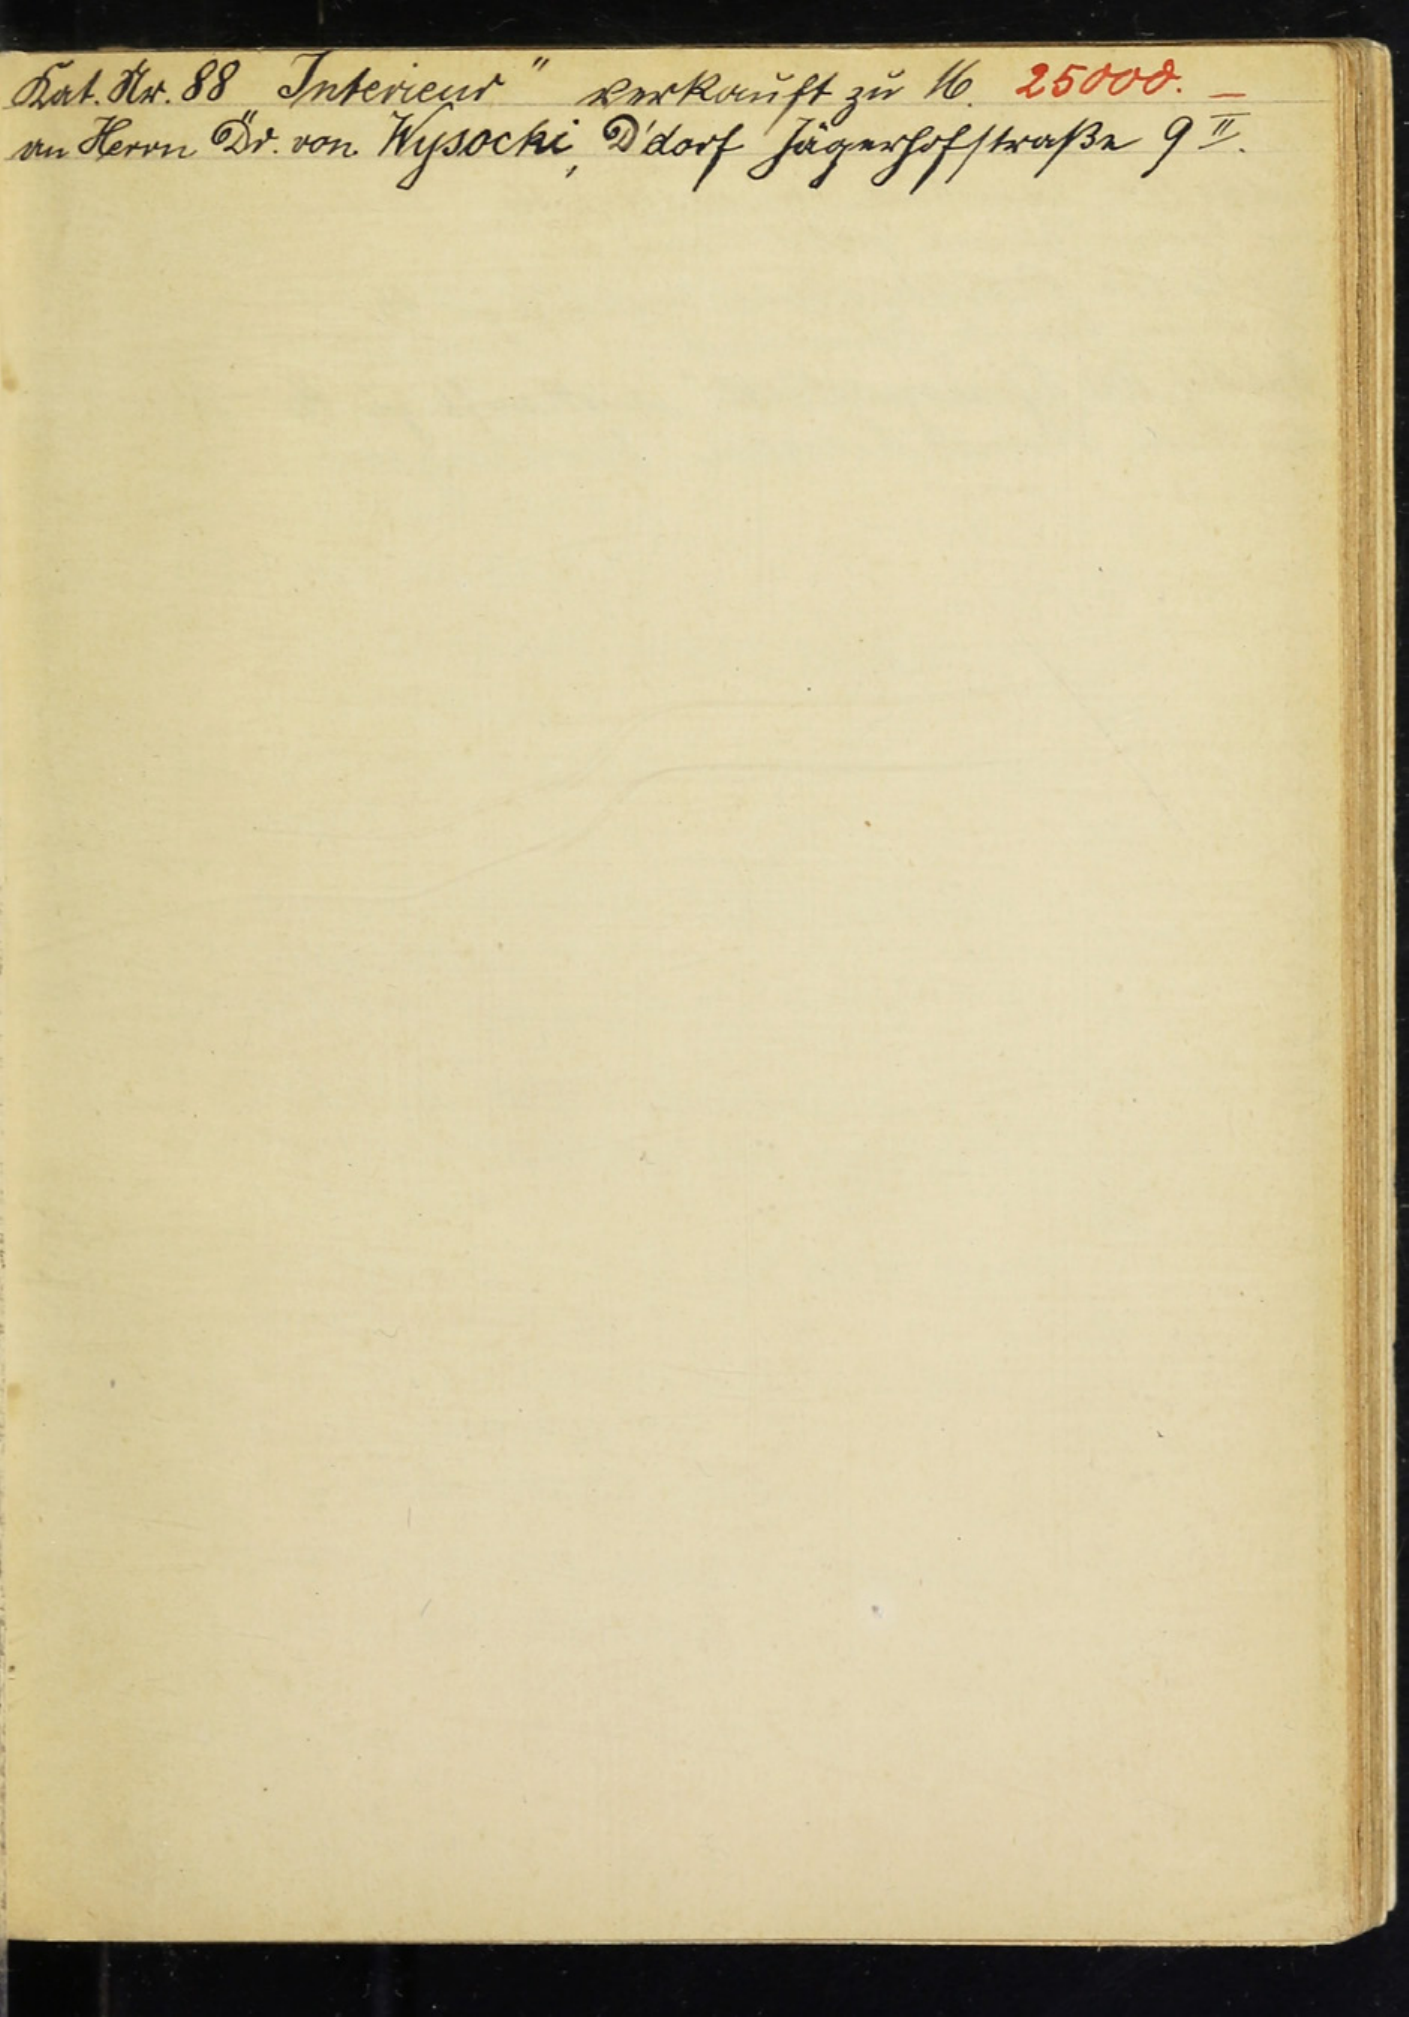 Kat. Nr. 88 „Interieur" verkauft zu M. 25000. —
an Herrn Dr. von Wysocki, D'dorf Jägerhofstraße 9 II.